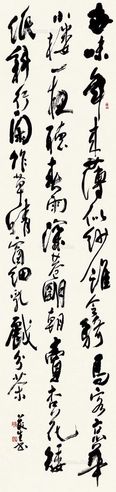 世味年来薄似纱谁令骑马客京华
小楼一夜听春雨深巷明朝卖杏花矮
纸斜行闲作草晴窗细乳戏分茶